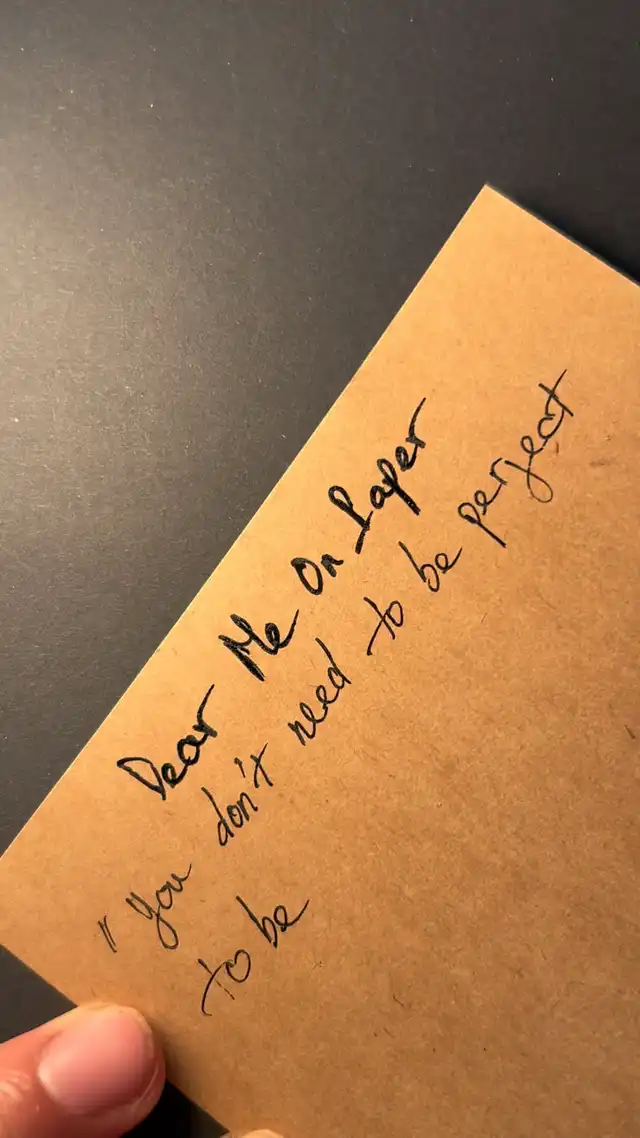 Dear Me On Paper
" You don't need to be perfect
to be